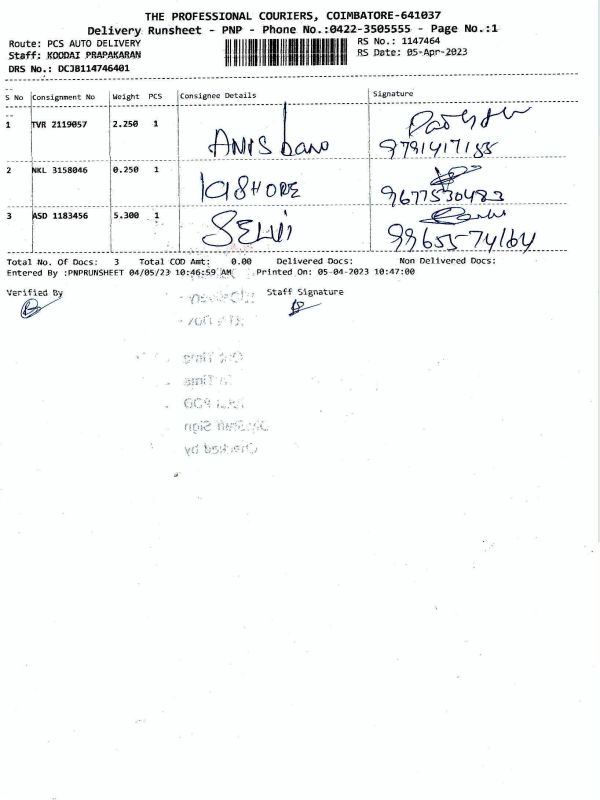 THE PROFESSIONAL COURIERS, COIMBATORE-641037
Delivery Runsheet - PNP - Phone No.:0422-3505555 - Page No.:1
Route: PCS AUTO DELIVERY
RS No.: 1147464
Staff: KOODAI PRAPAKARAN
RS Date: 05-Apr-2023
DRS No.: DCJB114746401
S No Consignment No Weight PCS Consignee Details Signature
1 TVR 2119057 2.250 1
ANIS banu
9791417155
2 NKL 3158046 0.250 1
KISHORE
9677530483
3 ASD 1183456 5.300 1
SELVI
99655-74164
Total No. Of Docs: 3 Total COD Amt: 0.00 Delivered Docs: Non Delivered Docs:
Entered By :PNPRUNSHEET 04/05/23 10:46:59 AM Printed On: 05-04-2023 10:47:00
Verified By Staff Signature
Out Time
In Time
Checked by